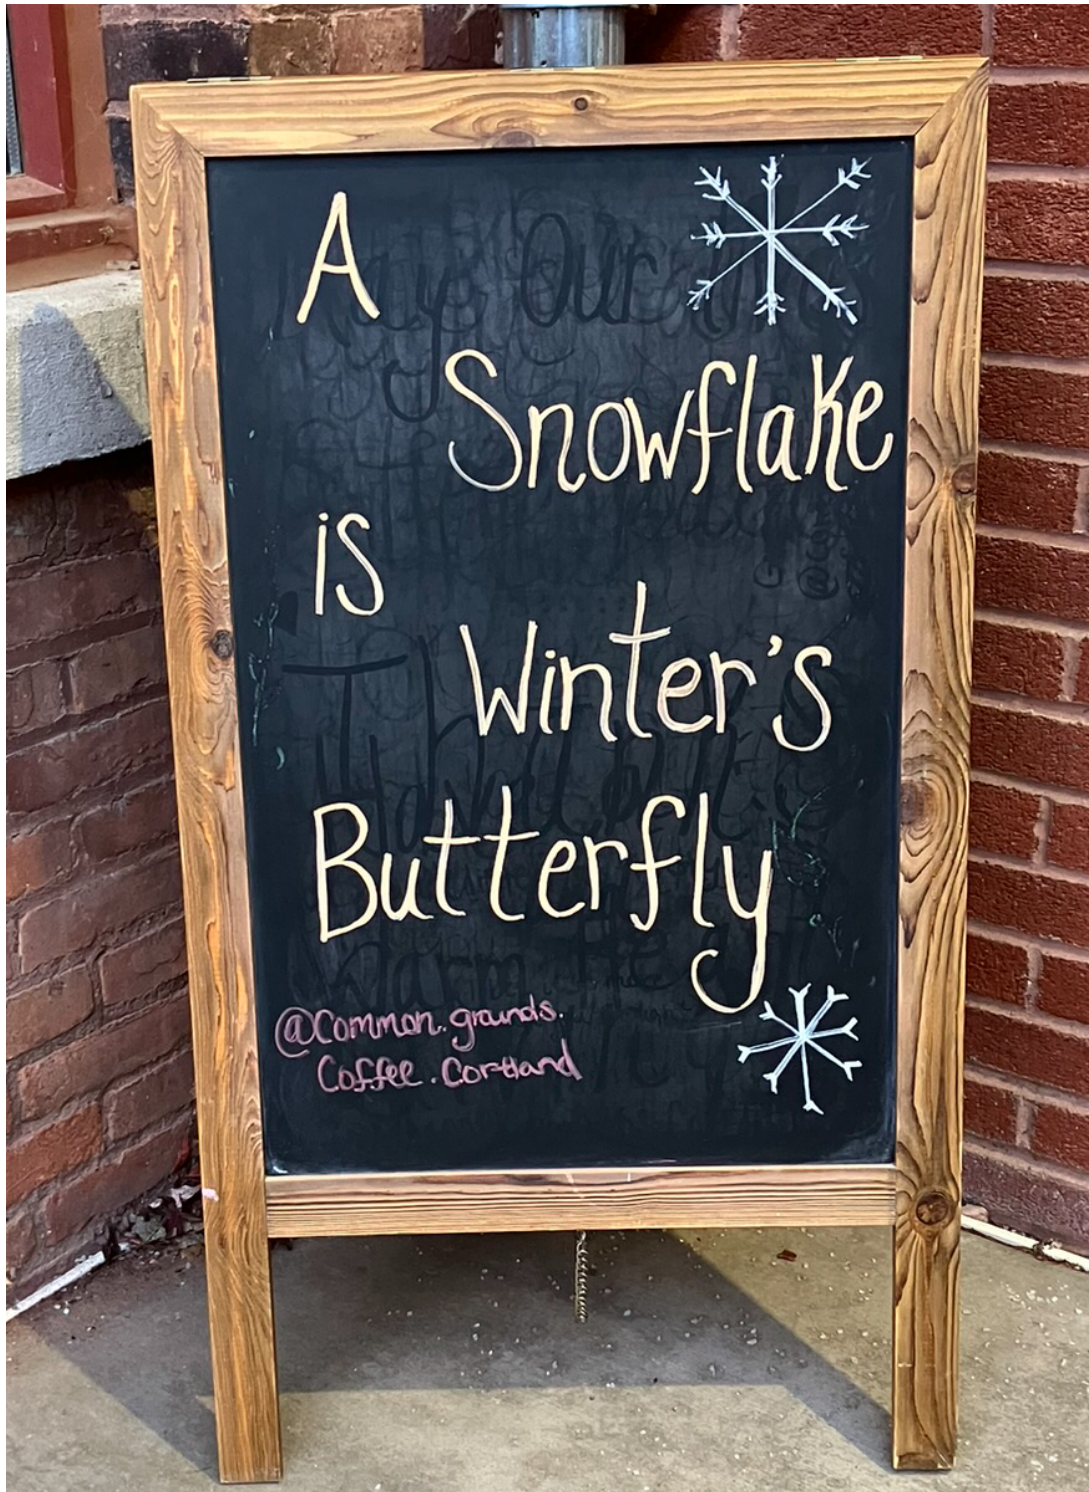 A
Snowflake
is
Winter's
Butterfly
@Common.grounds.
Coffee.Cortland